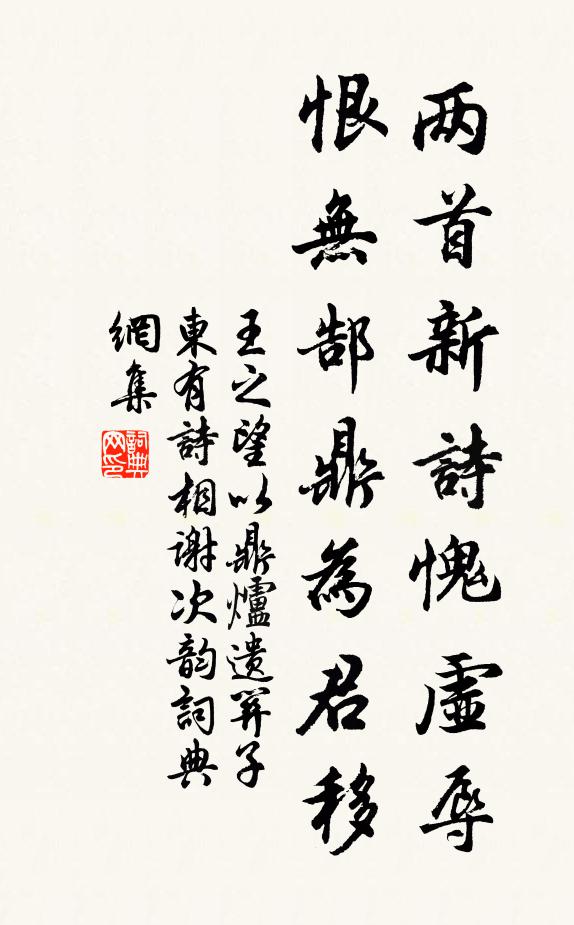 两首新詩愧虛辱
恨無郜鼎為君移
王之望以鼎爐遺算子
東有詩相谢次韵詞典
網集
詞典
网印